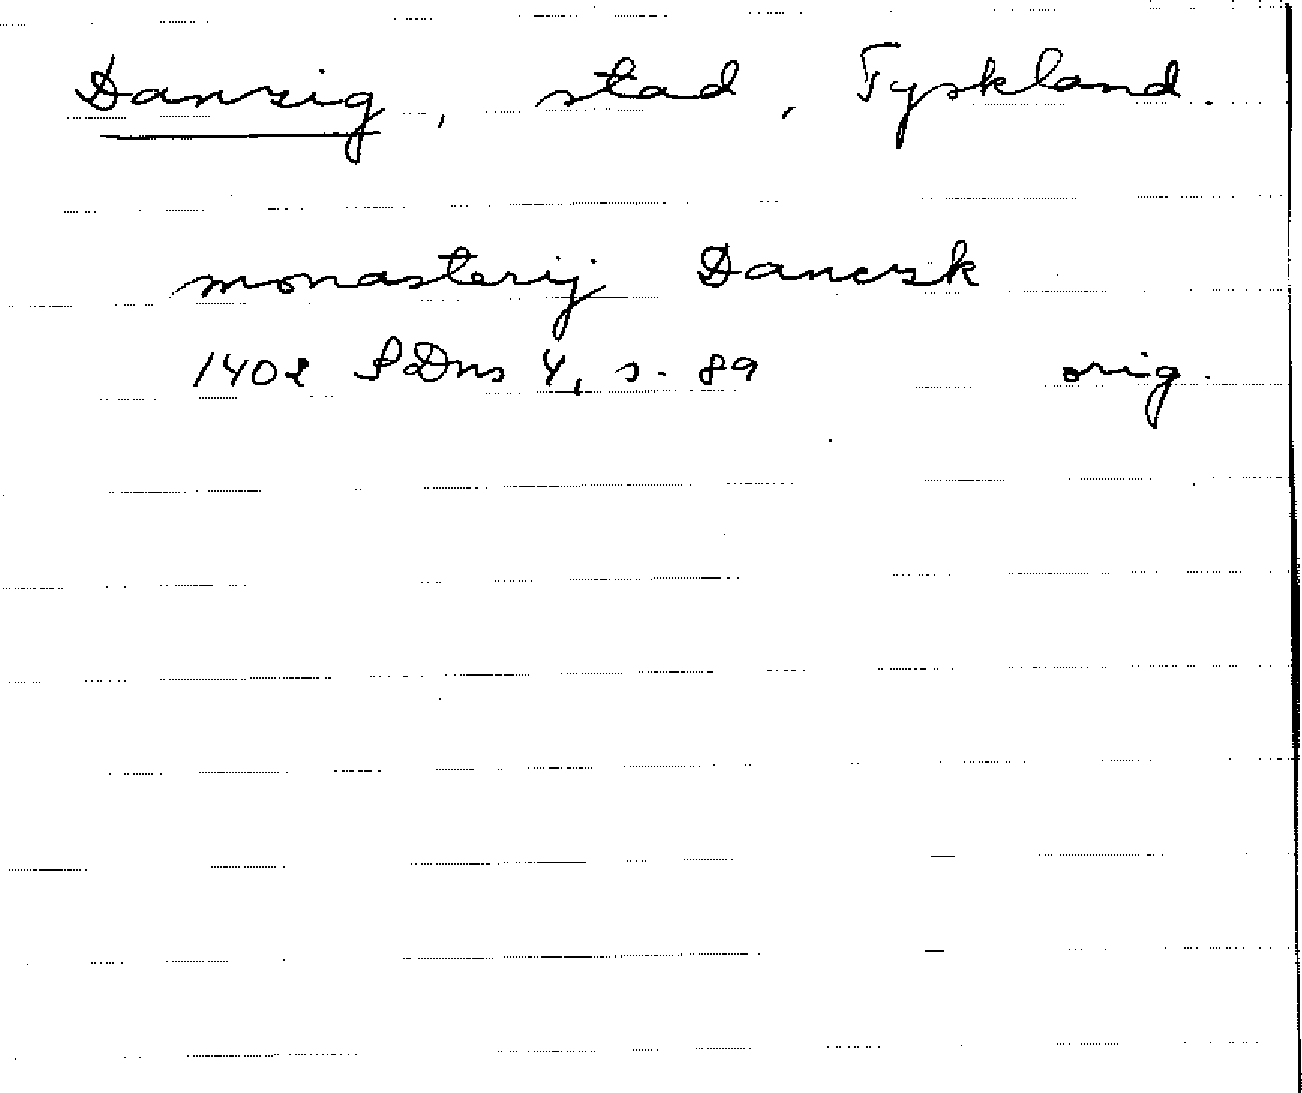 Danzig, stad, Tyskland.
monasterij Danczk
1402 SDns 4, s. 89 orig.